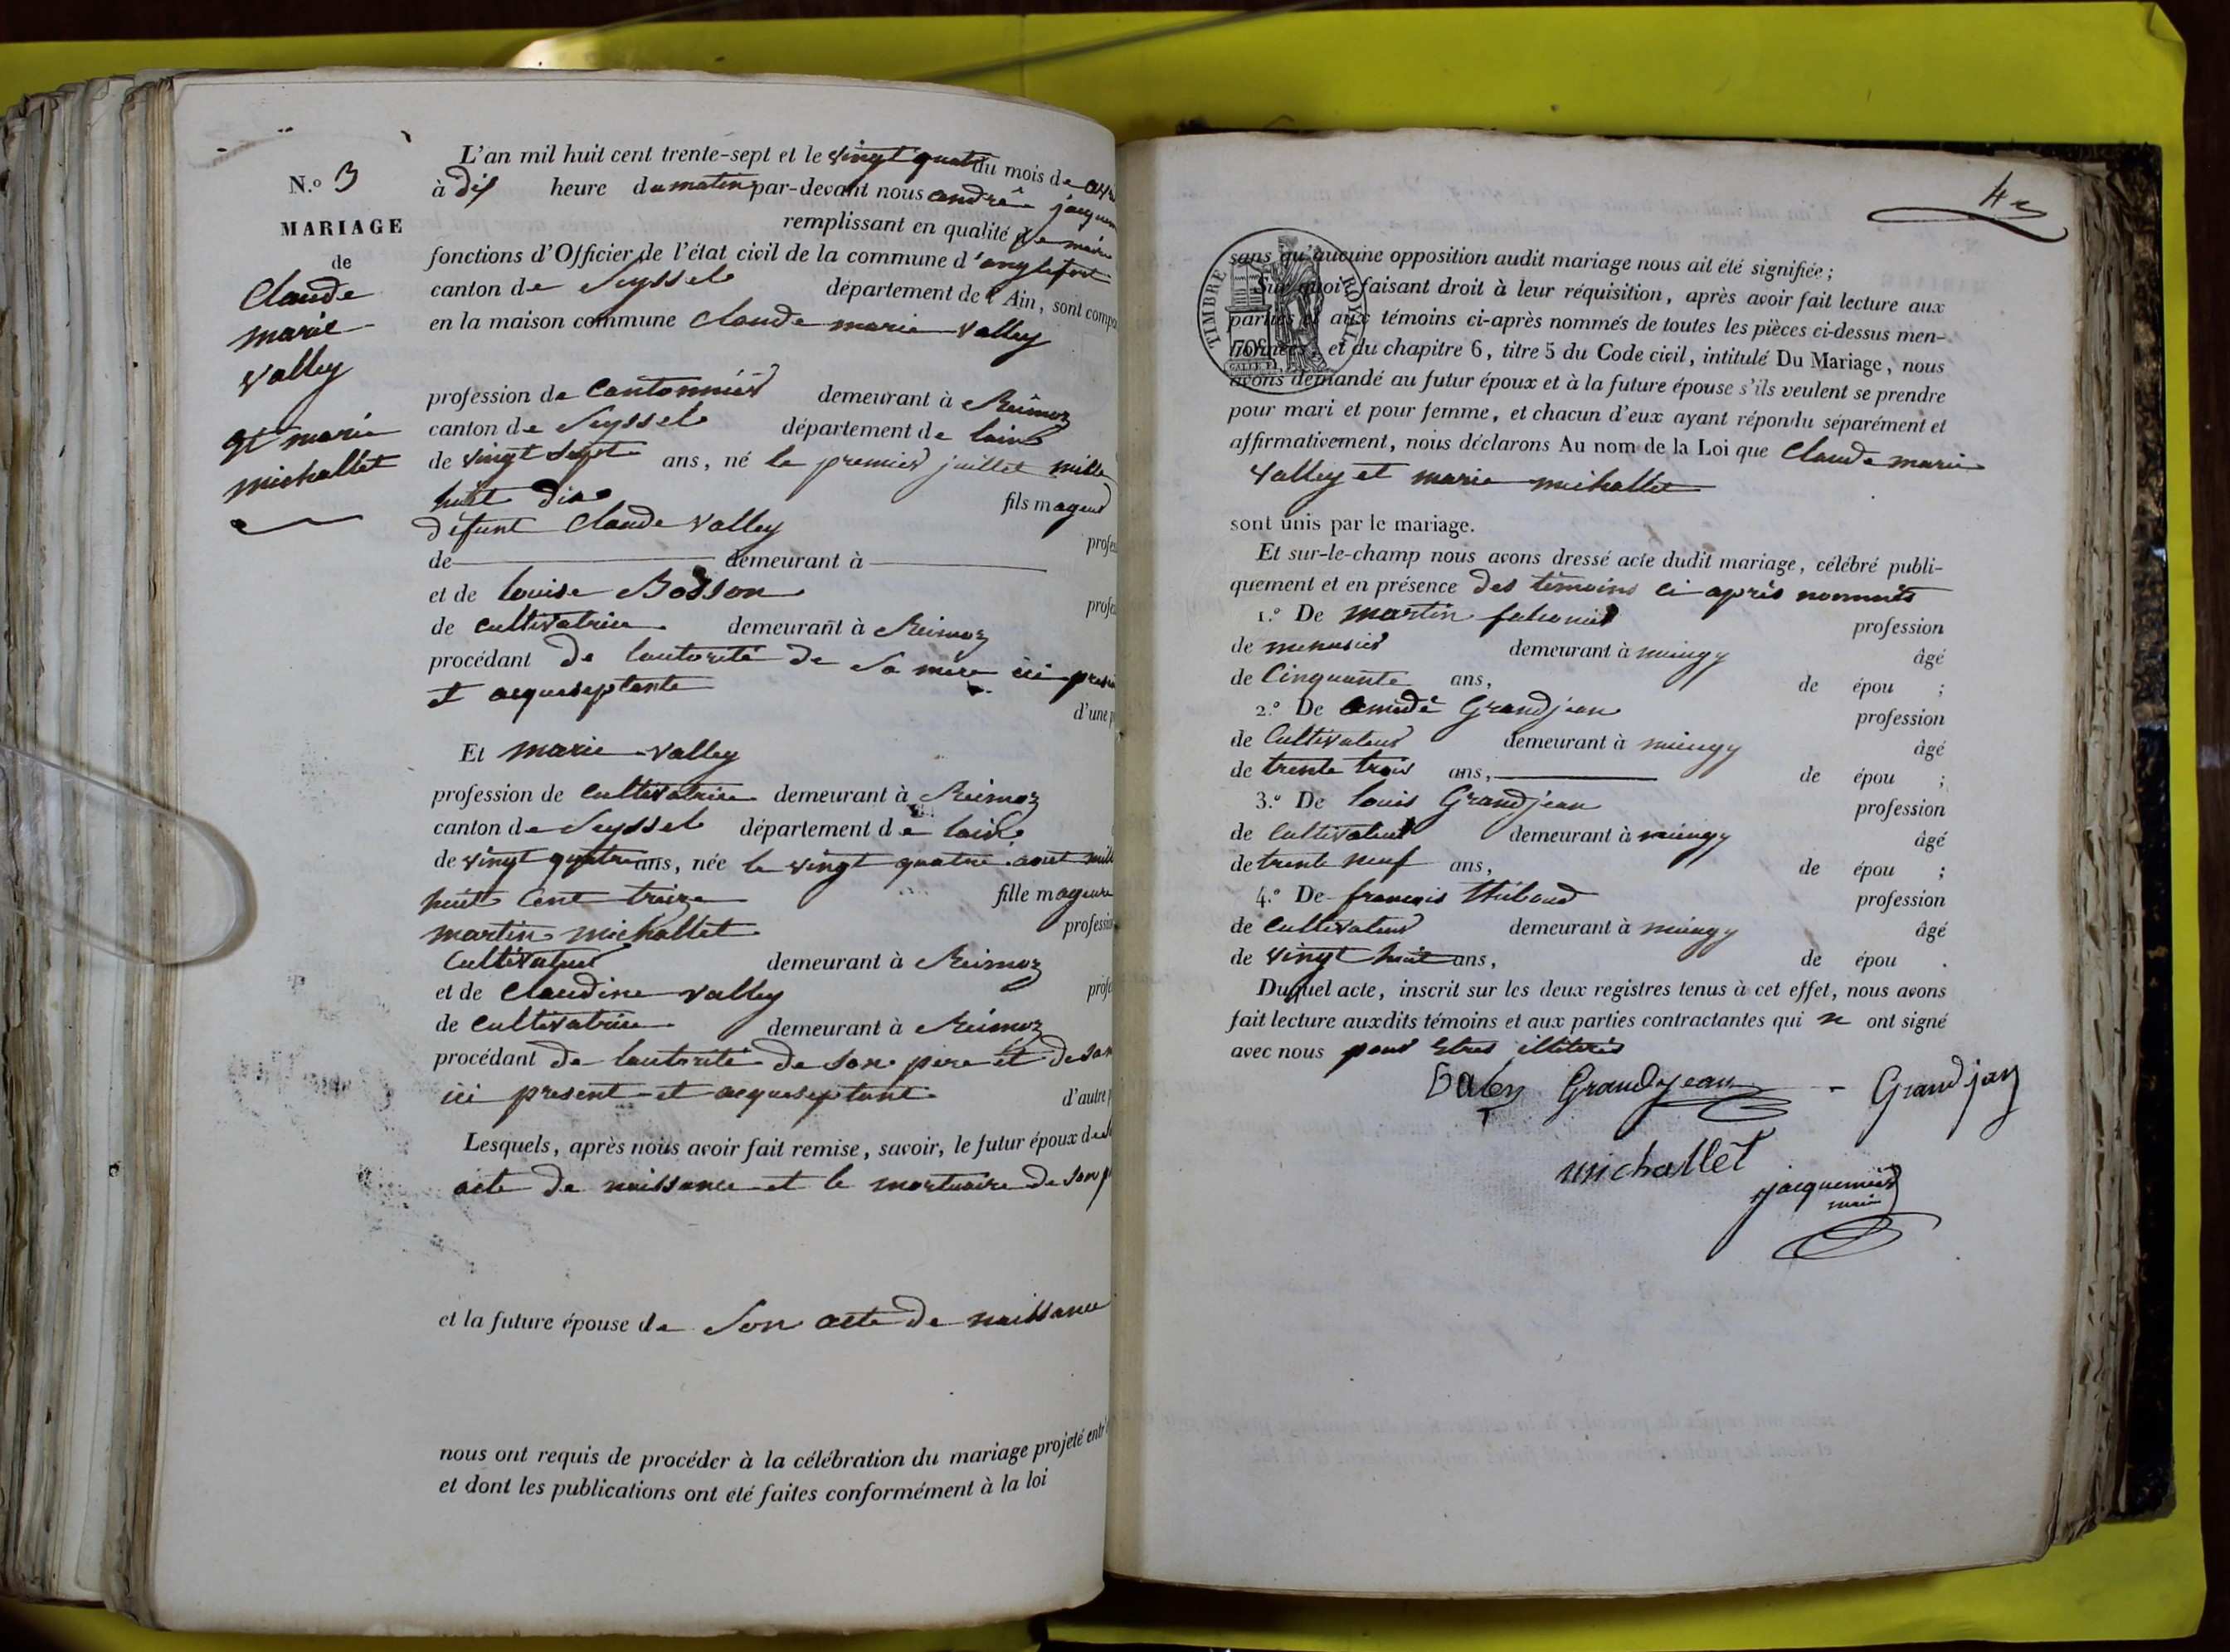 N.º 3
MARIAGE
de
Claude
marie
valley
et marie
michallet
L'an mil huit cent trente-sept et le vingt quatre du mois de avr
à dix heure du matin par-devant nous andré jacquem
remplissant en qualité de maire
fonctions d'Officier de l'état civil de la commune d'anglefort
canton de Seyssel département de l'Ain, sont compa
en la maison commune Claude marie valley
profession de Cantonnier demeurant à Reimoz
canton de Seyssel département de lain
de vingt sept ans, né le premier juillet mille
huit dix fils mageur
défunt Claude valley profes
de demeurant à
et de louise Bosson profes
de cultivatrice demeurant à Reimoz
procédant de lautorité de sa mere ici prese
et acqueseptante
d'une p
Et marie valley
profession de cultivatrice demeurant à Reimoz
canton de Seyssel département de lain
de vingt quatre ans, née le vingt quatre aout mill
huit cent treize fille mageure
martin michallet professio
Cultivateur demeurant à Reimoz
et de Claudine valley profe
de cultivatrice demeurant à Reimoz
procédant de lautorité de son pere et de sa
ici present et acqueseptant d'autre p
Lesquels, après nous avoir fait remise, savoir, le futur époux de
acte de naissance et le mortuaire de son p
et la future épouse de Son acte de naissance
nous ont requis de procéder à la célébration du mariage projeté entr
et dont les publications ont été faites conformément à la loi
TIMBRE ROYAL
70
sans qu'aucune opposition audit mariage nous ait été signifiée;
Sur quoi, faisant droit à leur réquisition, après avoir fait lecture aux
parties et aux témoins ci-après nommés de toutes les pièces ci-dessus men-
tionnées, et du chapitre 6, titre 5 du Code civil, intitulé Du Mariage, nous
avons demandé au futur époux et à la future épouse s'ils veulent se prendre
pour mari et pour femme, et chacun d'eux ayant répondu séparément et
affirmativement, nous déclarons Au nom de la Loi que Claude marie
valley et marie michallet
sont unis par le mariage.
Et sur-le-champ nous avons dressé acte dudit mariage, célébré publi-
quement et en présence des témoins ci après nommés
1.º De martin profession
de menusier demeurant à âgé
de Cinquante ans, de épou ;
2.º De amédé Grandjean profession
de Cultivateur demeurant à âgé
de trente trois ans, de épou ;
3.º De louis Grandjean profession
de cultivateur demeurant à âgé
de trente neuf ans, de épou ;
4.º De françois thibaud profession
de cultivateur demeurant à âgé
de vingt huit ans, de épou .
Duquel acte, inscrit sur les deux registres tenus à cet effet, nous avons
fait lecture auxdits témoins et aux parties contractantes qui n ont signé
avec nous pour etres illiterés
Valey Grandjean Grandjan
michallet
jacquemier
maire